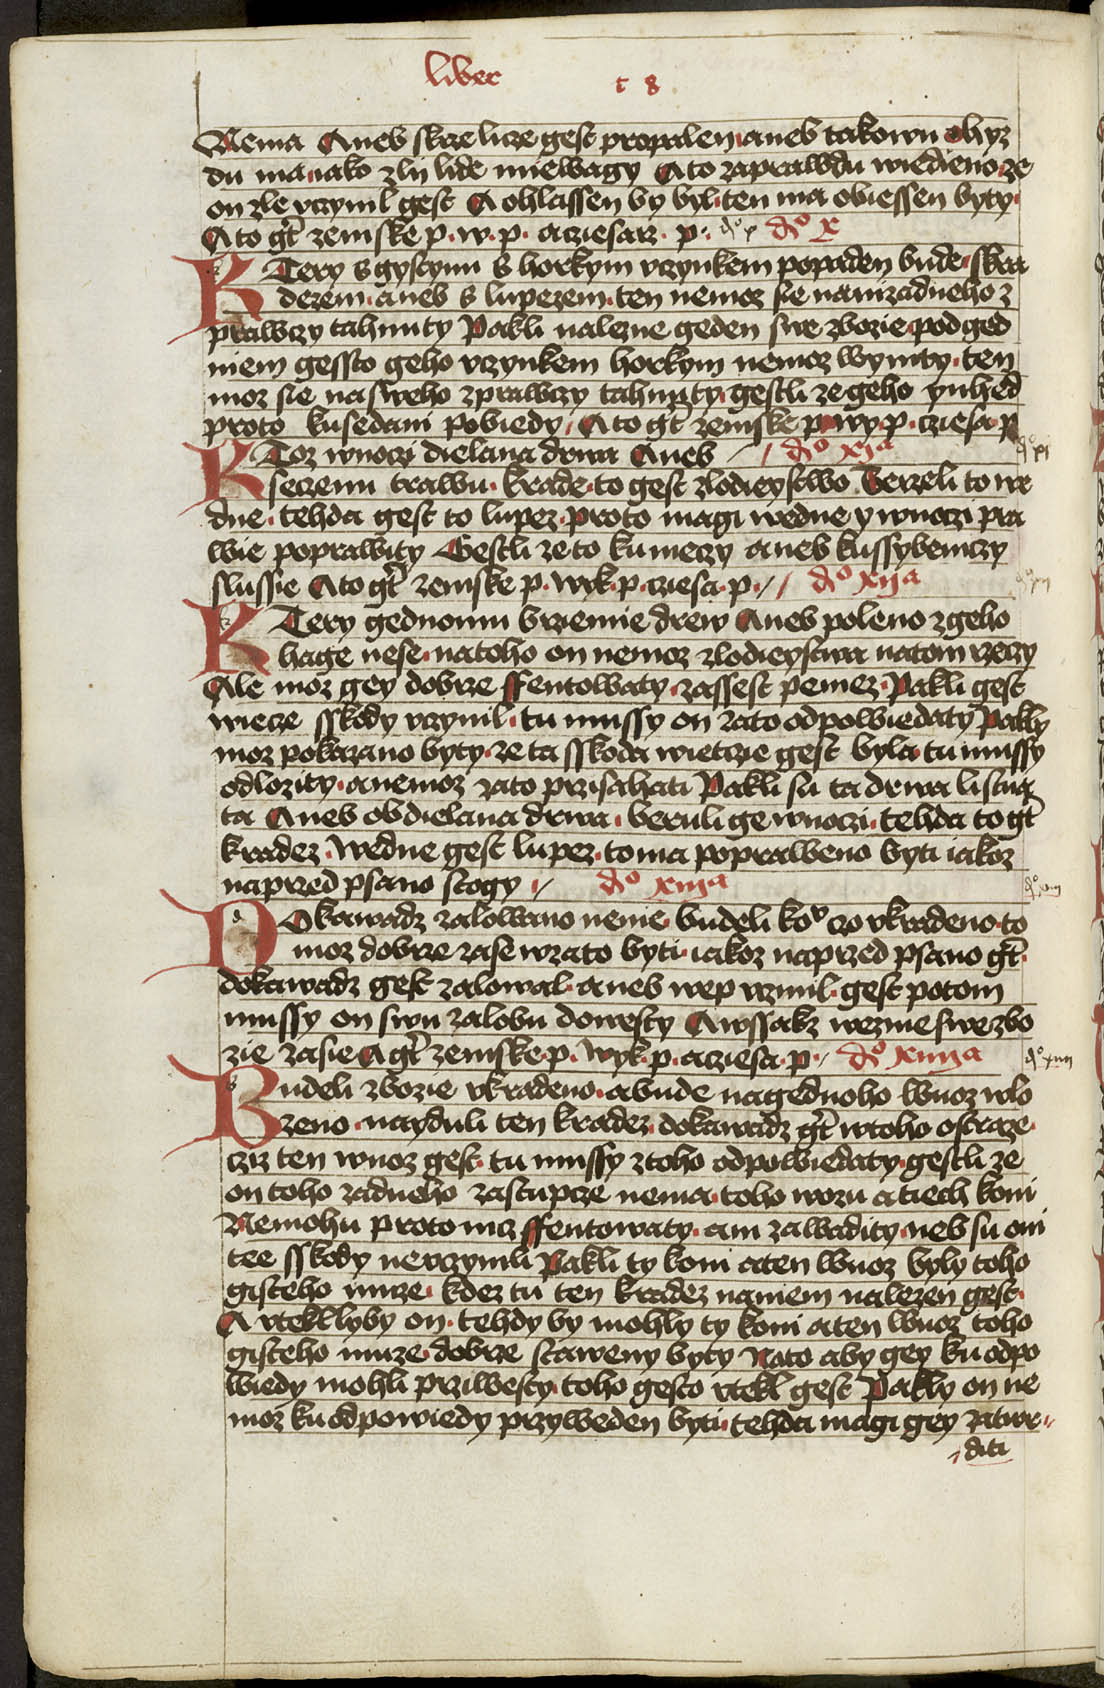 liber t 8
Nema Aneb skrze licze gest propalen aneb takowu ohyz
du ma iako zlij lide miewagy A to zaprawdu wiedieno ze
on zle vczynil gest A ohlassen by byl ten ma obiessen byty
A to gt zemske p. w. p. a cziesarz. p. d° x
KTery s gystynu s horkym vczynkem popaden bude skra
dezem aneb s lupezem ten nemoz sie na nizadneho z
prawczy tahnuty Pakli nalezne geden swe zbozie pod ged
niem gessto geho vczynkem horkym nemoz wymity ten
moz sie na sweho zprawczy tahnuty gestli ze geho ynhed
proto k usedani pobiedy A to gt zemske p wy. p. cziesa p
KToz w noczi dielana drwa Aneb d° xja
seczenu trawu krade to gest zlodieystwo Berzeli to we
dne tehda gest to lupez proto magi we dne y w noczi pra
wie poprawity Gestli ze to ku meczy aneb k ussybeniczy
slussie A to gt zemske p. wyk. p. cziesa. p. d° xija
KTery gednomu brziemie drew Aneb poleno z geho
hage nese na toho on nemoz zlodieystwa na tom rzeczy
Ale moz gey dobrze ffentowaty za ssest peniez Pakli gest
wiecze sskody vczynil tu mussy on za to odpowiedaty Pakly
moz pokazano byty ze ta sskoda wietczie gest byla tu mussy
odlozity a nemoz za to przisahati Pakli su ta drwa liscna
ta Aneb obdielana drwa beruli ge w noczi tehda to gt
kradez We dne gest lupez to ma poprabeno byti iakoz
naprzed psano stogy d° xiija
DOkawadz zalowano neme budeli ko° czo vkradeno to
moz dobrze zase wzato byti iakoz naprzed psano gt
dokawadz gest zalowal aneb wep vczinil gest potom
mussy on swu zalobu dowesty A wssakz wezme swe zbo
zie zasie A gt zemske p. wyk. p. a cziesa. p. d° xiiija
Budeli zbozie vkradeno a bude na gednoho wuoz wlo
zeno nayduli ten kradez dokawadz gt w toho ostraze
cziz ten wuoz gest tu mussy z toho odpowiedaty gestli ze
on toho zadneho zastupcze nema toho wozu a tiech koni
Nemohu proto nicz ffentowaty ani zawadity neb su oni
tee sskody neuczynili Pakli ty koni a ten wuoz byly toho
gisteho muze kdez tu ten kradez na niem nalezen gest
A vteklliby on tehdy by mohly ty koni a ten wuoz toho
gisteho muze dobrze staweny byty Nato aby gey ku odpo
wiedy mohli przijwesty toho gesto vtekl gest Pakly on ne
moz ku odpowiedy przyweden byti tehda magi gey zatwr
diti